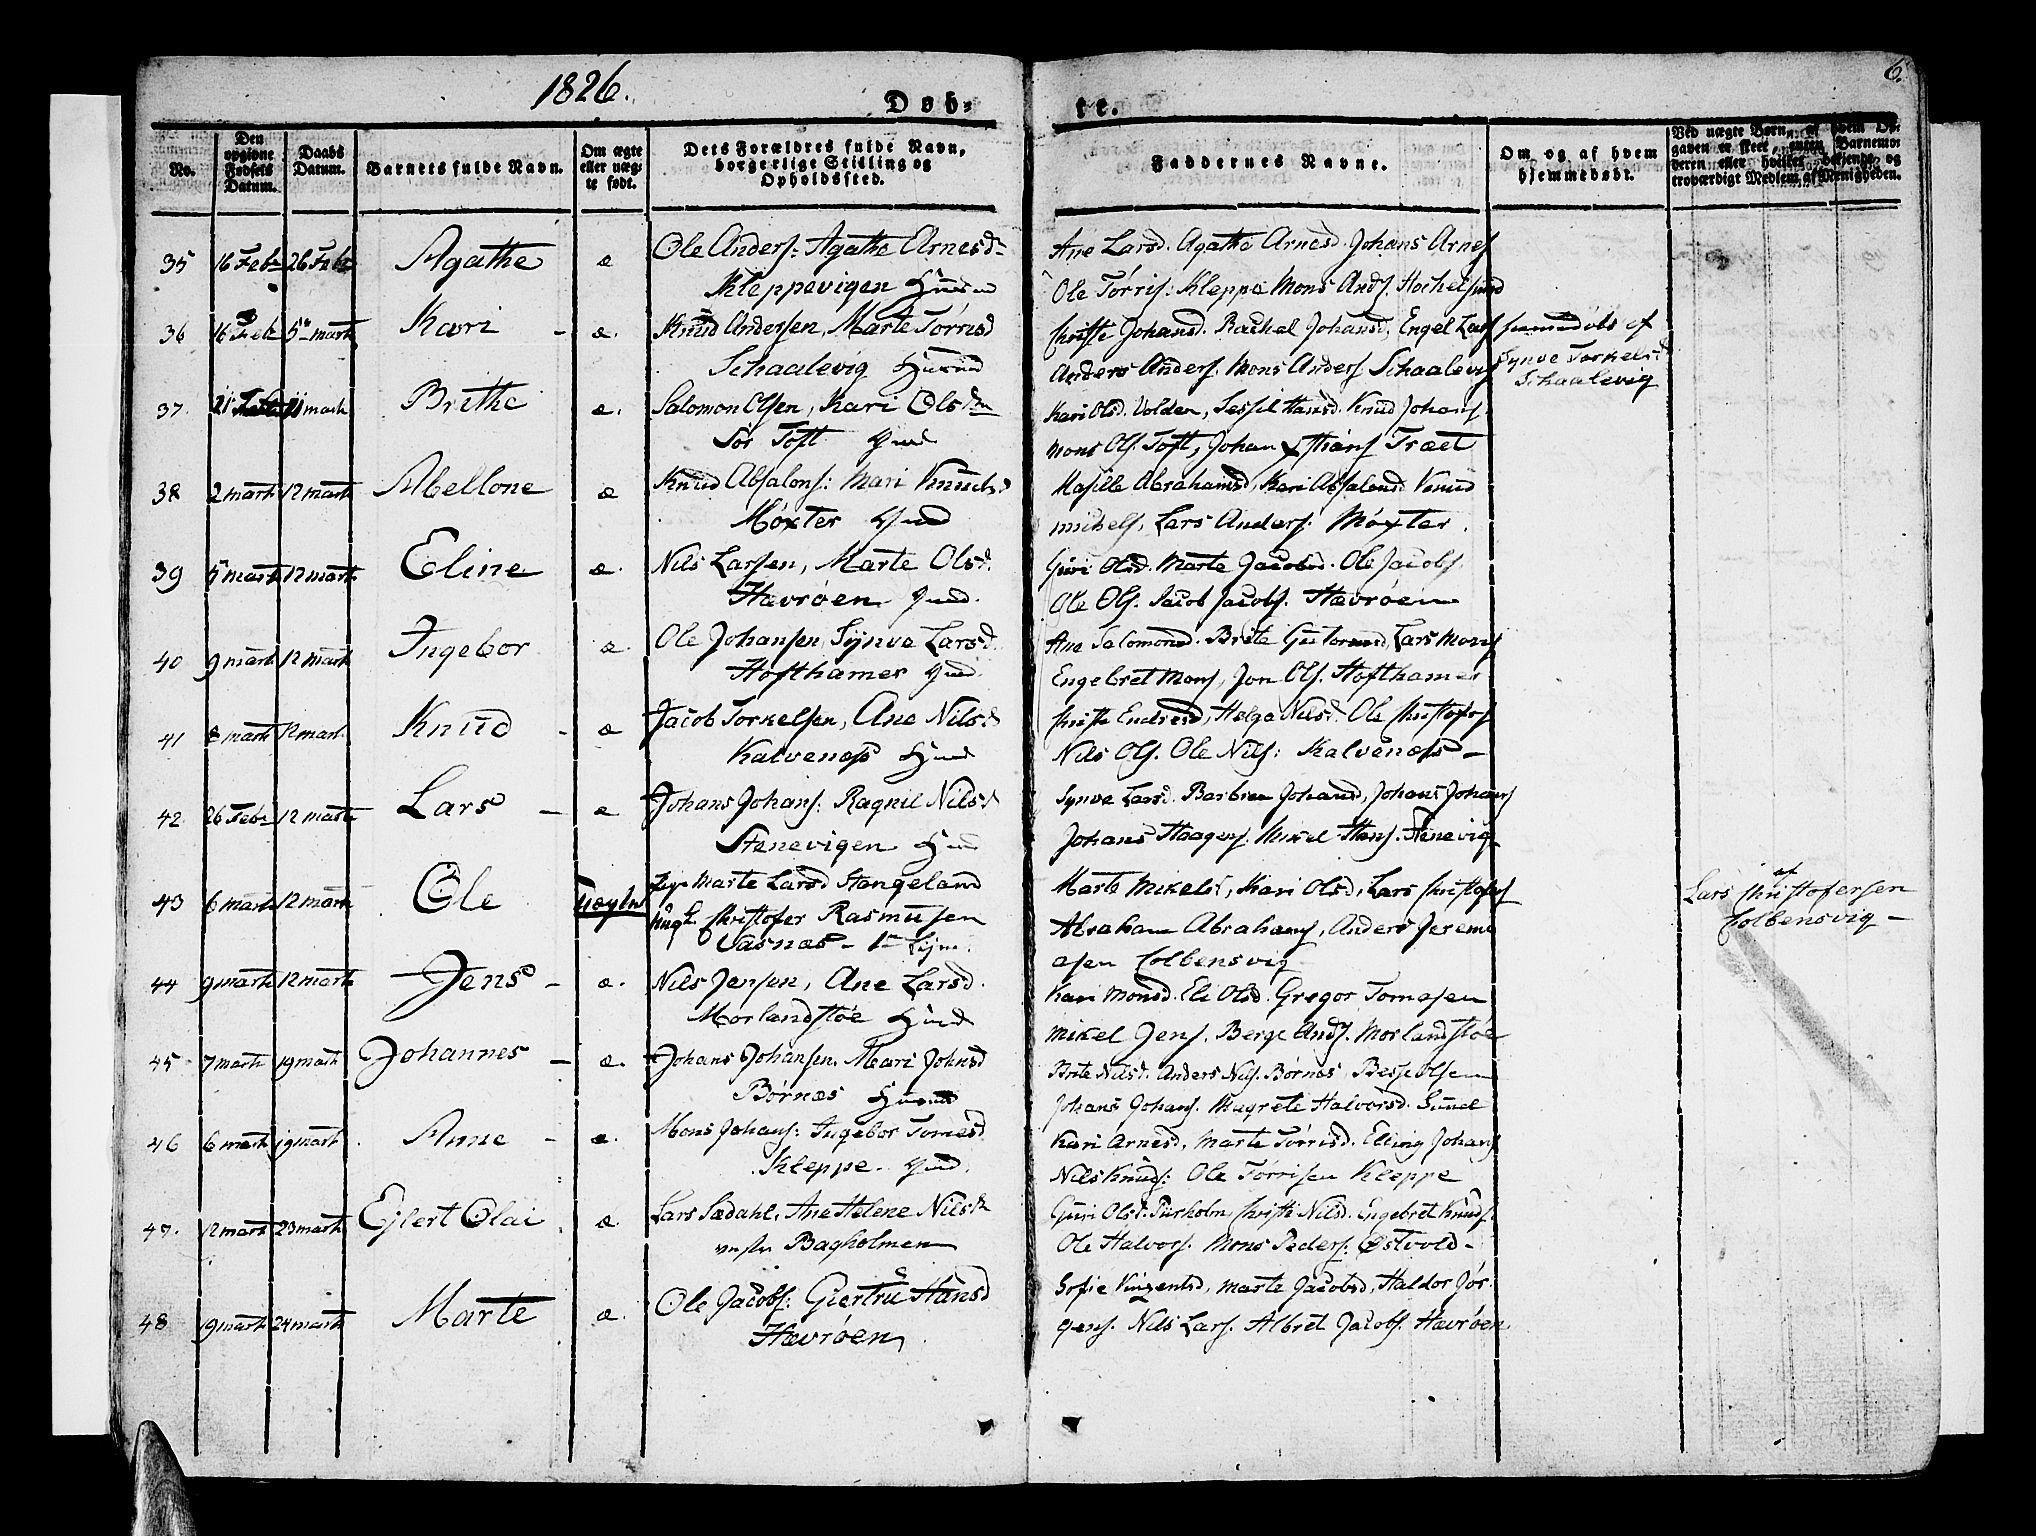 1826.
6.
Døb-
te.
No.
Den opgivne Fødsels Datum.
Daabs Datum.
Barnets fulde Navn.
Om ægte eller uægte født.
Dets Forældres fulde Navn, borgerlige Stilling og Opholdssted.
Faddernes Navne.
Om og af hvem hjemmedøbt.
Ved uægte Børn, af hvem Opgaven er skeet, enten Barnemoderen eller hvilket bekjendt og troværdigt Medlem af Menigheden.
35 16 Febr 26 Febr Agathe æ Ole Anders: Agathe Arnesd
Kleppevigen
Ane Larsd. Agathe Arnesd. Johans Arnes
Ole Tørris: Kleppe Mons Ands.
36 16 Feb 5 marti Kari - æ. Knud Andersen, Marte Tørrisd
Schaalevig
Christe Johansd. Rachel Johansd, Engel Lars
Anders Anders. Mons Anders Schaalevig
af
Synve Torkelsd
Schaalevig
37. 21 11 mart Brithe æ. Salomon Olsen, Kari Olsd
Sør Toft
Kari Olsd. Volden, Sessil Hansd. Knud Johans.
Mons Ols. Toft, Johan Træet
38 2 marti 12 marti Mellone æ Knud Absalons: Mari Knudsd
Møxter
Abrahamsd, Kari Absalonsd. Knud
mikels, Lars Anders: Møxter.
39 5 marti 12 marti Eline æ. Nils Larsen, Marte Olsd.
Hævrøen
Guri Olsd. Marte Jacobsd. Ole Jacobs.
Ole Ols. Jacob Jacobs. Hævrøen
40 9 marti 12 marti Ingebor æ Ole Johansen, Synve Larsd.
Hofthamer
Ane Salomonsd. Brite Gutormsd, Lars Mons
Engebret Mons, Jon Ols. Hofthamer
41 8 marti 12 mart. Knud - æ Jacob Torkelsen, Ane Nilsd.
Kalvenæss
Christe Endresd, Helga Nilsd. Ole Christofers
Nils Ols. Ole Nils: Kalvenæss -
42 26 Febr 12 marti Lars - æ Johans Johans: Ragnil Nilsd
Stenevigen
Synve Larsd. Barbru Johansd, Johans Johans
Johans Haagens. Mikel Hans. Stenevig
43 6 marti 12 marti Ole uægte Pige Marte Larsd Stangeland
Ungk. Christofer Rasmusen
Vasnæs -
Marte Mikelsd, Kari Olsd, Lars Christofers
Abraham Abrahams, Anders Jeremi
asen Colbensvig
af
Lars Christofersen
Colbensvig -
44 9 marti 12 marti Jens - æ. Nils Jensen, Ane Larsd.
Mørlandstøe
Kari Monsd. Eli Olsd. Gregor Tomasen
Mikel Jens. Berge Ands. Morlandstøe
45 7 marti 19 marti Johannes - æ. Johans Johansen. Mari Johnsd
Børnæs
Brite Nilsd. Anders Nils. Børnæs, Besse Olsen
Johans Johans. Magrete Halvorsd. Sund
46 6 marti 19 marti Anne - æ. Mons Johans: Ingebor Tomesd
Kleppe.
Kari Arnesd, Marte Tørrisd. Elling Johans
Nils Knuds: Ole Tørrisen Kleppe
47. 12 marti 23 marti Ejlert Olai æ Lars Sædahl, Ane Helene Nilsd
Bagholmen
Guri Olsd. Christi Nilsd. Engebret Knuds.
Ole Halvors. Mons Peders: Østvold -
48 19 marti 24 marti Marte æ. Ole Jacobs: Giertru Hansd
Hævrøen
Sofie Vinzentsd, Marte Jacobsd, Haldor Jør-
gens. Nils Lars. Albret Jacobs. Hævrøen